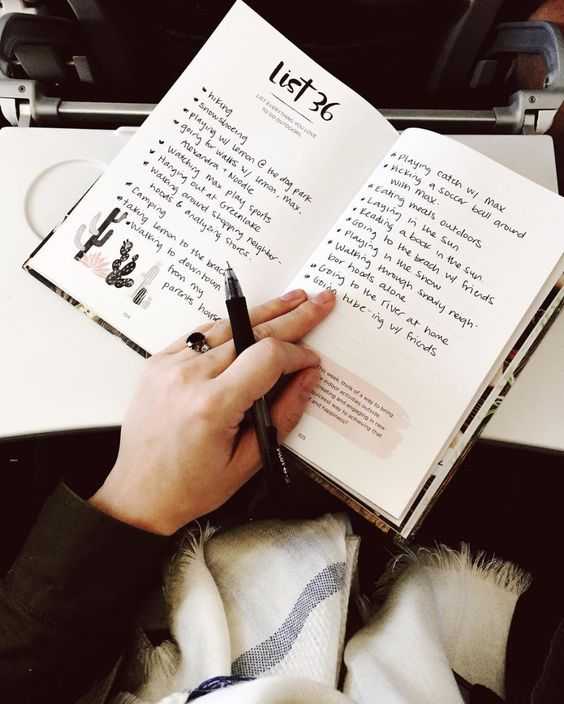 List 36
LIST EVERYTHING YOU LOVE
TO DO OUTDOORS.
hiking
snowshoeing
playing w/ lemon @ the dog park
going for walks w/ lemon, max,
Alexandra, Noodle
Watching max play sports
Hanging out at Greenlake
walking around shopping neighbor-
hoods & analyzing stores.
Camping
Taking lemon to the beach
Walking to downtown
from my
parents house
Playing catch w/ max
Kicking a soccer ball around
with max.
Eating meals outdoors
Laying in the sun
Reading a book in the sun
Going to the beach w/ friends
Playing in the snow
Walking through shady neigh-
bor hoods alone
Going to the river at home
Going tube-ing w/ friends
this week, think of a way to bring
indoor activities outside.
and engaging in new
way to achieving that
and happiness?